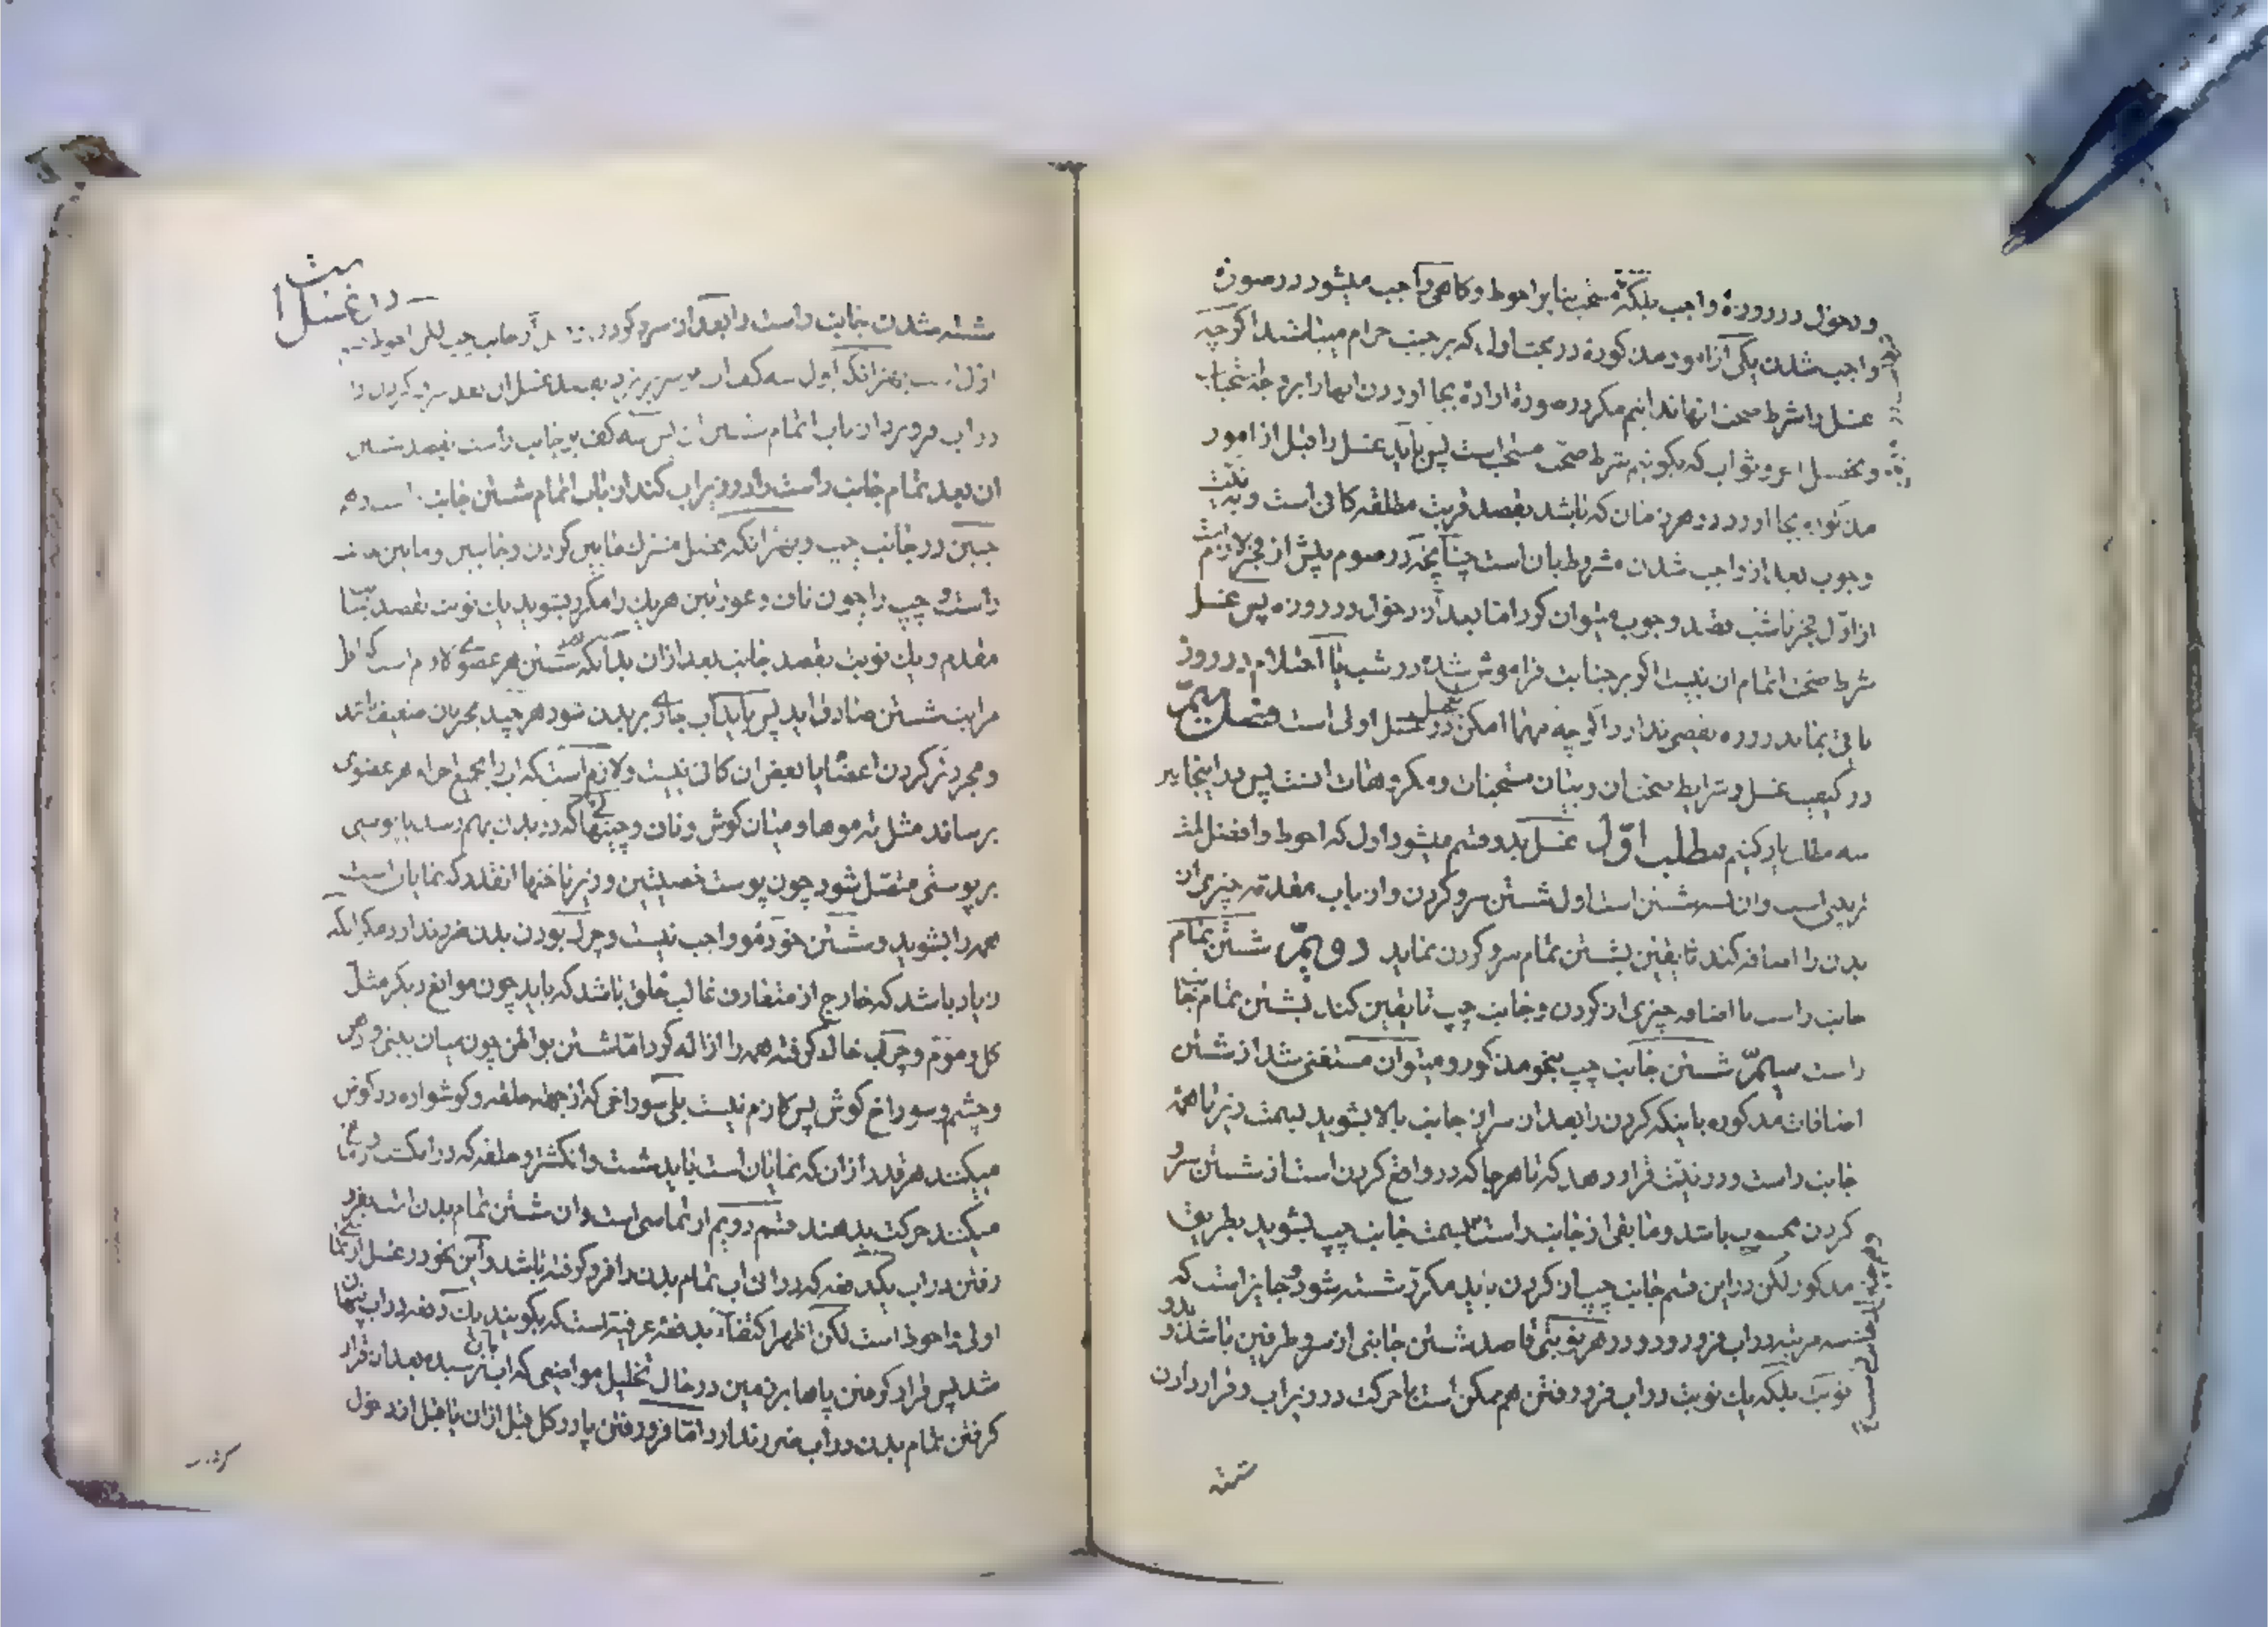 و دخول در روزه واجب بلکه مستحب بنابر احوط و کاهی واجب میشود در صورة
واجب شدن یکی از امور مذکوره در بحث اول که بر جنب حرام میباشد اکرچه
غسل را شرط صحت انها ندانیم مکر در صورة ارادۀ بجا اوردن انها را بر وجه استحباب
و تحصیل اجر و ثواب که بکوئیم شرط صحت مستحب است پس باید غسل را قبل از امور
مذکوره بجا اورد و در هر زمان که باشد بقصد قربت مطلقه کافی است و به نیت
وجوب بعد از واجب شدن مشروط بان است چنانچه در صوم پیش از فجر لازم است
از اول فجر تا شب بقصد وجوب میتوان کرد اما بعد از دخول در روزه پس غسل
شرط صحت اتمام ان نیست اکر بر جنابت فراموش شده در شب یا احتلام در روز
باقی بماند روزه نقصی ندارد اکرچه مهما امکن در غسل اولی است فصل سیم
در کیفیت غسل و شرایط صحت ان و بیان مستحبات و مکروهات انست پس در اینجا بر
سه مطلب یاد کنیم مطلب اول غسل بدو قسم میشود اول که احوط و افضل است
ترتیبی است وان سه شستن است اول شستن سر و کردن و از باب مقدمه چیزی از
بدن را اضافه کند تا یقین بشستن تمام سر و کردن نماید دویم شستن تمام
جانب راست با اضافه چیزی از کردن و جانب چپ تا یقین کند بشستن تمام جانب
راست سیم شستن جانب چپ بنحو مذکور و میتوان مستغنی شد از شستن
اضافات مذکوره باینکه کردن را بعد از سر از جانب بالا بشوید بسمت زیر تا همه
جانب راست و در نیت قرار دهد که تا هر جا که در واقع کردن است از شستن سر و
کردن محسوب باشد و مابقی از جانب راست بسمت جانب چپ بشوید بطریق
مذکور لکن در این قسم جانب چپ از کردن باید مکرر شسته شود و جایز است که
سه مرتبه در اب فرو رود و در هر نوبتی قاصد شستن جانبی از سر و طرفین باشد و بدو
نوبت بلکه یک نوبت در اب فرو رفتن هم ممکن است با حرکت در زیر اب و قرار دادن
شسته
در اغسال است
شسته شدن جانب راست را بعد از سر و کردن جانب چپ لکن احوط
اول است بهتر انکه اول سه کف اب بر سر بریزد بقصد غسل ان بعد سر و کردن را
در اب فرو برد از باب اتمام شستن ان پس سه کف بر جانب راست بقصد شستن
ان بعد تمام جانب راست را در زیر اب کند از باب اتمام شستن جانب است و
چنین در جانب چپ و بهتر انکه محل مشترک مابین کردن و جانبین و مابین
راست و چپ را چون ناف و عورتین هر یک را مکرر بشوید یک نوبت بقصد جانب
مقدم و یک نوبت بقصد جانب بعد از ان بدانکه در شستن هر عضوی لازم است که اقل
مراتب شستن صادق اید پس باید اب جاری بر بدن شود هر چند بجریان ضعیف باشد
و مجرد تر کردن اعضا یا بعض ان کافی نیست و لازم است که اب را بجمیع اجزاء هر عضوی
برساند مثل ته موها و میان کوش و ناف و چینهائی که در بدن بهم رسد یا پوستی
بر پوستی متصل شود چون پوست خصیتین و زیر ناخنها انقدر که نمایان است
همه را بشوید و شستن خود مو واجب نیست و چرک بودن بدن ضرر ندارد مکر انکه
زیاد باشد که خارج از متعارف غالب خلق باشد که باید چون موانع دیکر مثل
کل و موم و چرک خاک کرفته همه را ازاله کرد اما شستن بواطن چون میان بینی و دهن
و چشم و سوراخ کوش پس لازم نیست بلی سوراخی که از جهة حلقه و کوشواره در کوش
میکنند هر قدر از ان که نمایان است باید شست و انکشتر و حلقه که در انکشت و دماغ
میکنند حرکت بدهند قسم دویم ارتماسی است و ان شستن تمام بدن است بفرو
رفتن در اب یکدفعه که در ان اب تمام بدن را فرو کرفته باشد و این نحو در غسل ارتماسی
اولی و احوط است لکن اظهر اکتفاء بدفعه عرفیه است که بکویند یک دفعه در اب پنهان
شد پس قرار کرفتن پاها بر زمین در حال تخلیل مواضعی که اب بان نرسیده بعد از قرار
کرفتن تمام بدن در اب ضرر ندارد اما فرو رفتن پا در کل قبل از ان یا قبل از دخول